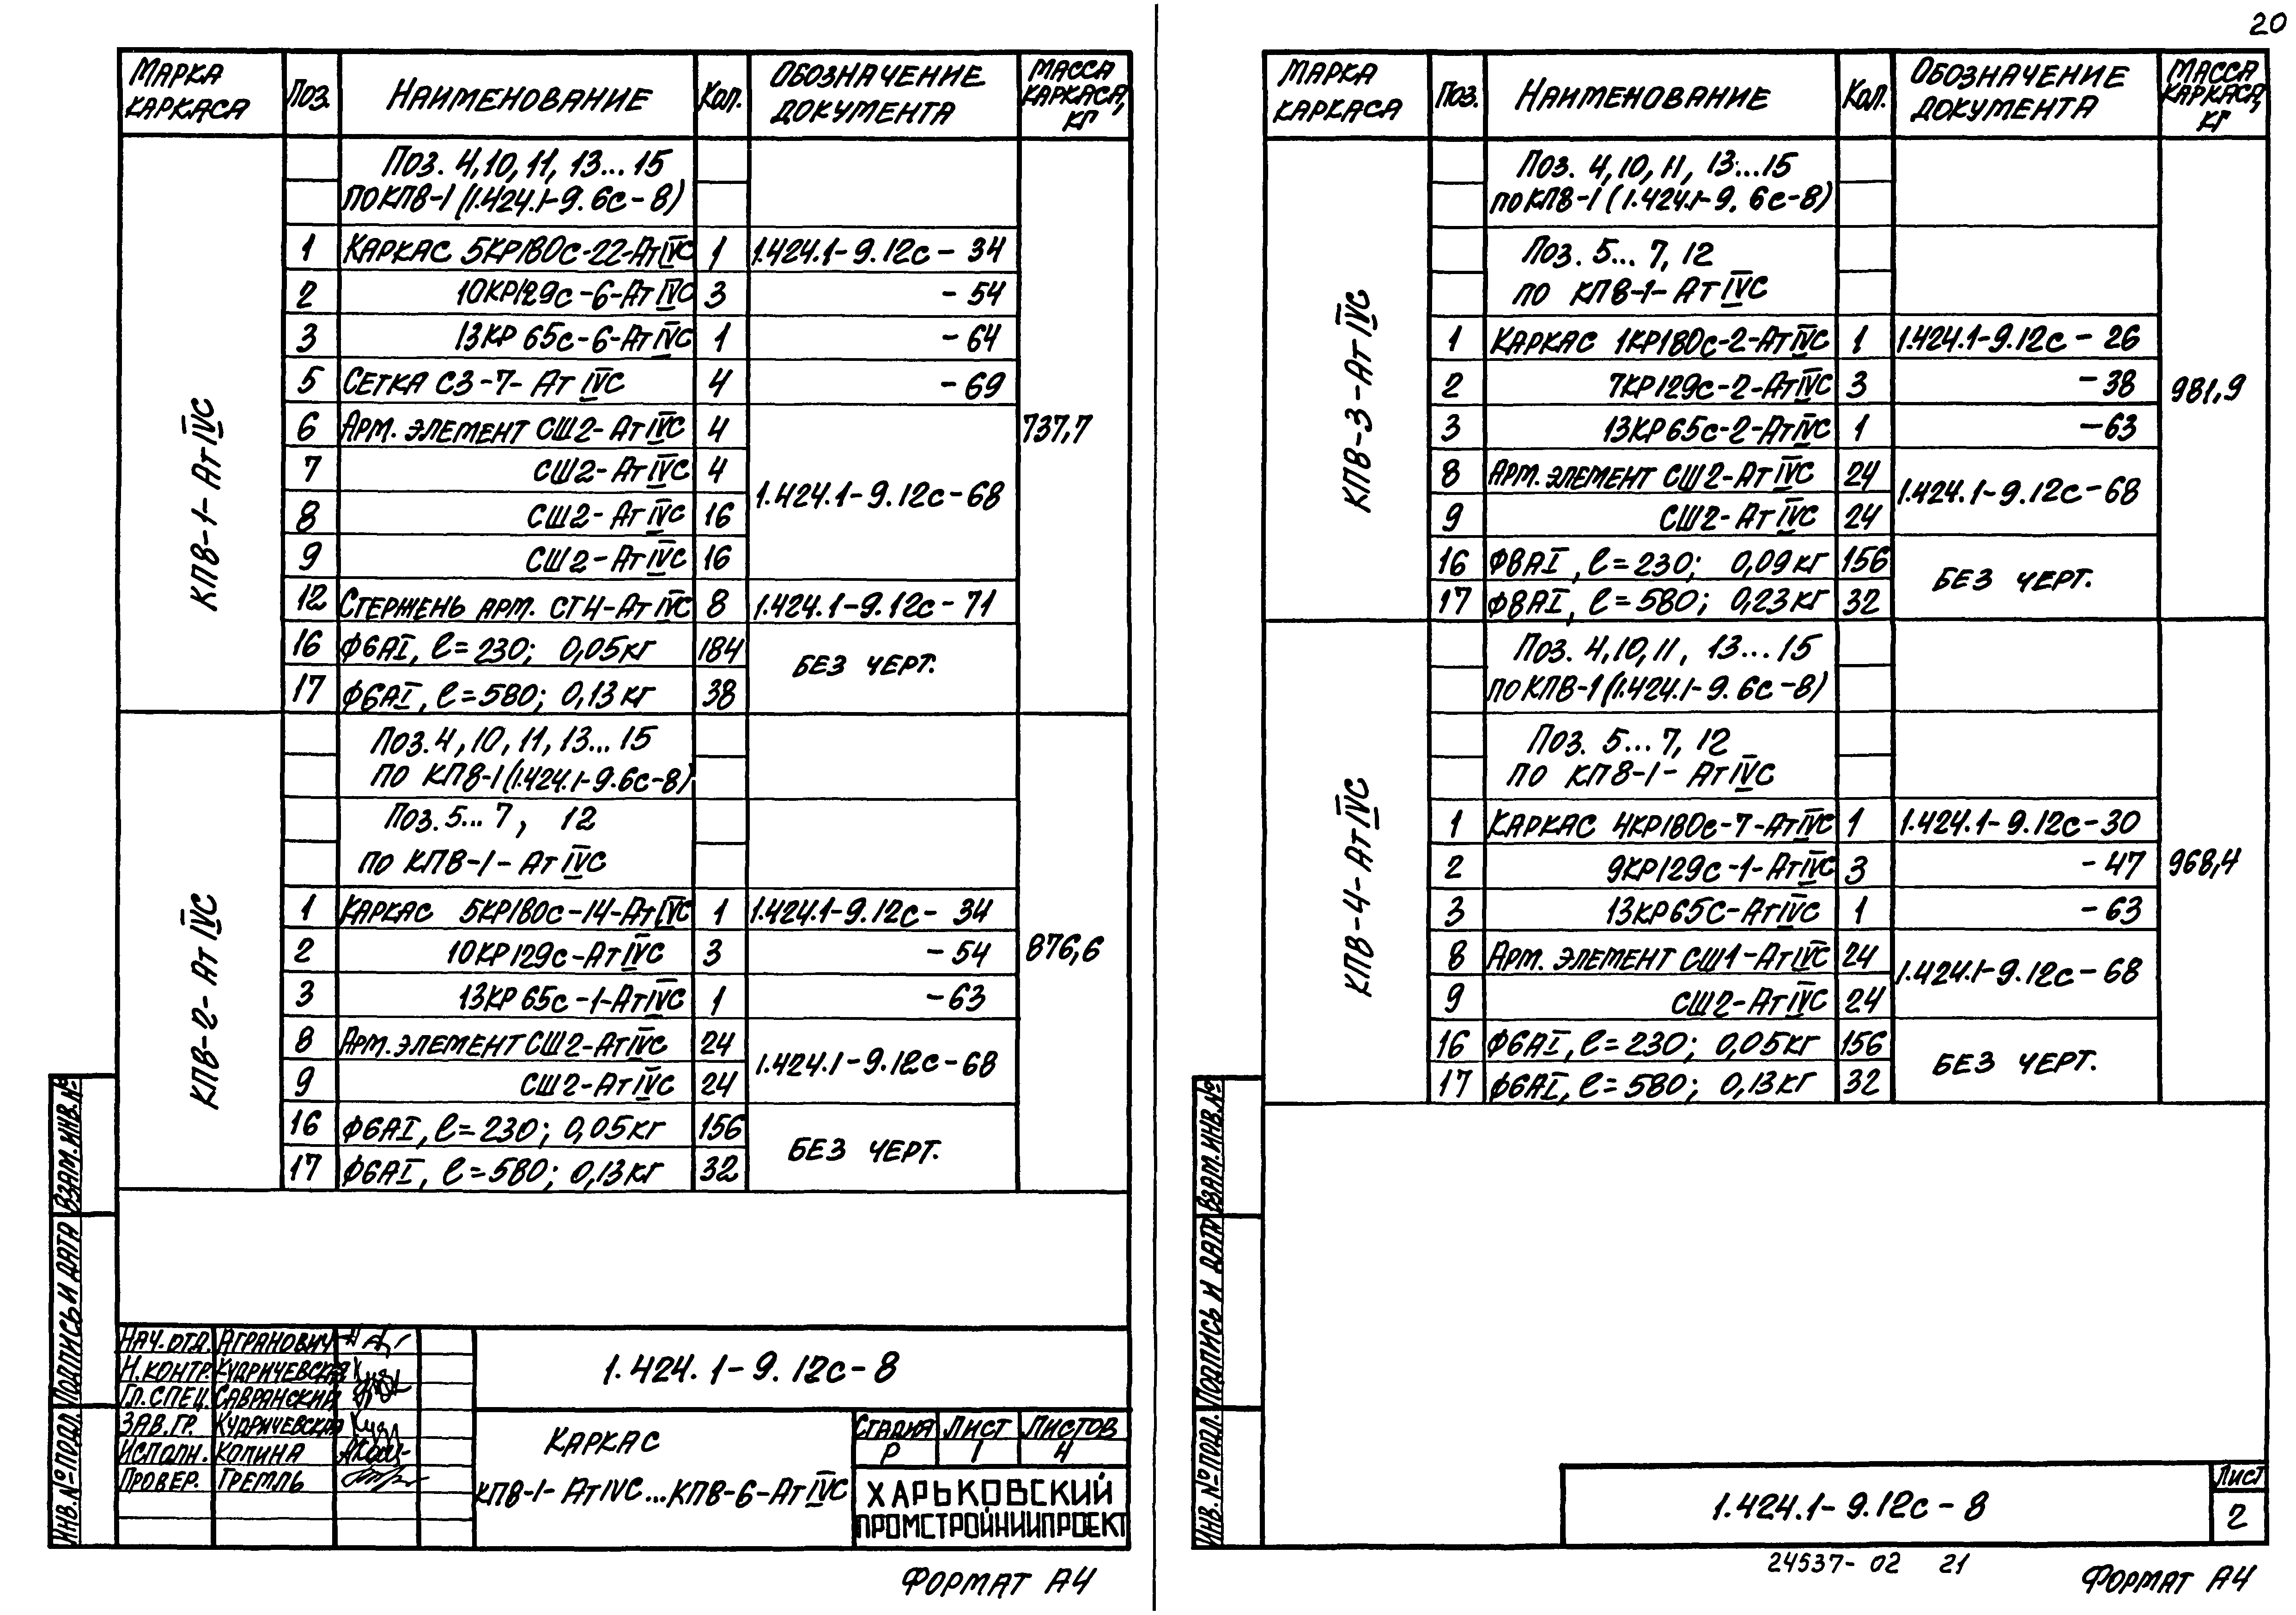 20
МАРКА КАРКАСА ПОЗ. НАИМЕНОВАНИЕ КОЛ. ОБОЗНАЧЕНИЕ ДОКУМЕНТА МАССА КАРКАСА, КГ
КП8-1-АтIVС
ПОЗ. 4, 10, 11, 13...15
ПО КП8-1 (1.424.1-9.6с-8)
1 КАРКАС 5КР180с-22-АтIVС 1 1.424.1-9.12с-34
2 10КР129с-6-АтIVС 3 -54
3 13КР65с-6-АтIVС 1 -64
5 СЕТКА С3-7-АтIVС 4 -69
6 АРМ. ЭЛЕМЕНТ СШ2-АтIVС 4
737,7
7 СШ2-АтIVС 4
1.424.1-9.12с-68
8 СШ2-АтIVС 16
9 СШ2-АтIVС 16
12 СТЕРЖЕНЬ АРМ. СТ4-АтIVС 8 1.424.1-9.12с-71
16 Ф6АI, ℓ=230; 0,05кг 184
БЕЗ ЧЕРТ.
17 Ф6АI, ℓ=580; 0,13кг 38
КП8-2-АтIVС
ПОЗ. 4, 10, 11, 13...15
ПО КП8-1 (1.424.1-9.6с-8)
ПОЗ. 5...7, 12
ПО КП8-1-АтIVС
1 КАРКАС 5КР180с-14-АтIVС 1 1.424.1-9.12с-34
2 10КР129с-АтIVС 3 -54
876,6
3 13КР65с-1-АтIVС 1 -63
8 АРМ. ЭЛЕМЕНТ СШ2-АтIVС 24
1.424.1-9.12с-68
9 СШ2-АтIVС 24
16 Ф6АI, ℓ=230; 0,05кг 156
БЕЗ ЧЕРТ.
17 Ф6АI, ℓ=580; 0,13кг 32
ВЗАМ. ИНВ. №
ПОДПИСЬ И ДАТА
ИНВ. № ПОДЛ.
НАЧ. ОТД. АГРАНОВИЧ
Н. КОНТР. КУДРИЧЕВСКАЯ
ГЛ. СПЕЦ. САВРАНСКИЙ
ЗАВ. ГР. КУДРИЧЕВСКАЯ
ИСПОЛН. КОПИНА
ПРОВЕР. ТРЕМЛЬ
1.424.1-9.12с-8
КАРКАС
КП8-1-АтIVС...КП8-6-АтIVС
СТАДИЯ ЛИСТ ЛИСТОВ
Р 1 4
ХАРЬКОВСКИЙ
ПРОМСТРОЙНИИПРОЕКТ
ФОРМАТ А4
МАРКА КАРКАСА ПОЗ. НАИМЕНОВАНИЕ КОЛ. ОБОЗНАЧЕНИЕ ДОКУМЕНТА МАССА КАРКАСА, КГ
КП8-3-АтIVС
ПОЗ. 4, 10, 11, 13...15
ПО КП8-1 (1.424.1-9.6с-8)
ПОЗ. 5...7, 12
ПО КП8-1-АтIVС
1 КАРКАС 1КР180с-2-АтIVС 1 1.424.1-9.12с-26
2 7КР129с-2-АтIVС 3 -38
981,9
3 13КР65с-2-АтIVС 1 -63
8 АРМ. ЭЛЕМЕНТ СШ2-АтIVС 24
1.424.1-9.12с-68
9 СШ2-АтIVС 24
16 Ф8АI, ℓ=230; 0,09кг 156
БЕЗ ЧЕРТ.
17 Ф8АI, ℓ=580; 0,23кг 32
КП8-4-АтIVС
ПОЗ. 4, 10, 11, 13...15
ПО КП8-1 (1.424.1-9.6с-8)
ПОЗ. 5...7, 12
ПО КП8-1-АтIVС
1 КАРКАС 4КР180с-7-АтIVС 1 1.424.1-9.12с-30
2 9КР129с-1-АтIVС 3 -47
968,4
3 13КР65С-АтIVС 1 -63
8 АРМ. ЭЛЕМЕНТ СШ1-АтIVС 24
1.424.1-9.12с-68
9 СШ2-АтIVС 24
16 Ф6АI, ℓ=230; 0,05кг 156
БЕЗ ЧЕРТ.
17 Ф6АI, ℓ=580; 0,13кг 32
ВЗАМ. ИНВ. №
ПОДПИСЬ И ДАТА
ИНВ. № ПОДЛ.
1.424.1-9.12с-8
ЛИСТ
2
24537-02 21
ФОРМАТ А4